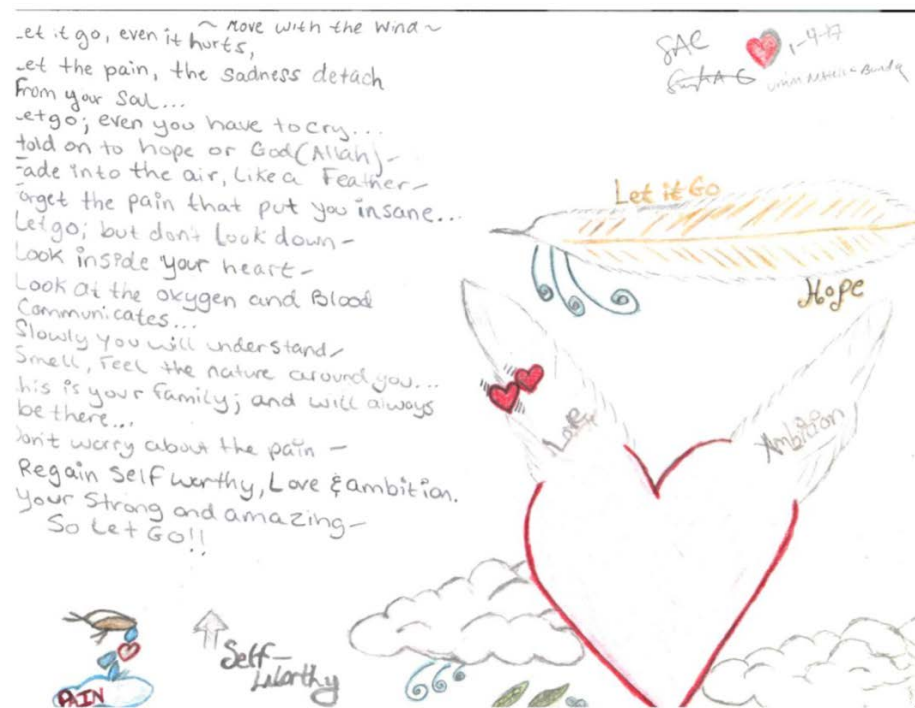 ~ Move with the Wind ~
et it go, even it hurts,
et the pain, the sadness detach
From your Sol...
et go; even you have to cry...
told on to hope or God (Allah) -
ade into the air, Like a Feather -
orget the pain that put you insane...
Let go; but don't Look down -
Look inside your heart -
Look At the oxygen and Blood
Communicates...
Slowly you will understand -
Smell, Feel the nature around you...
his is your family; and will always
be there...
on't worry about the pain -
Regain Self worthy, Love & ambition.
Your Strong and amazing -
So Let Go!!
SAC
1-4-17
Let it Go
Hope
Love
Ambition
PAIN
Self-
Worthy